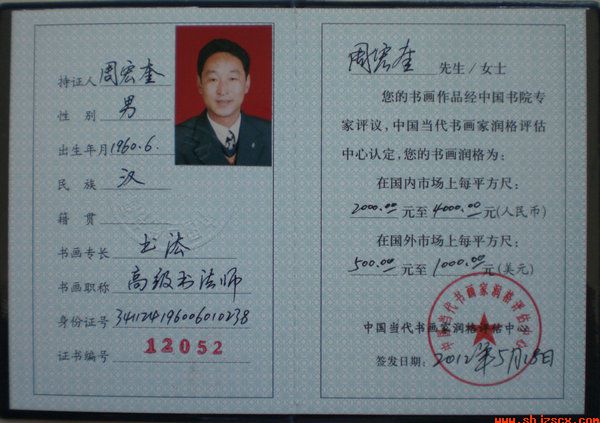 持证人 周宏奎
性 别 男
出生年月 1960.6.
民 族 汉
籍 贯
书画专长 书法
书画职称 高级书法师
身份证号 341241196006010238
证书编号 12052
周宏奎 先生/女士
您的书画作品经中国书院专
家评议，中国当代书画家润格评估
中心认定，您的书画润格为：
在国内市场上每平方尺：
2000.00 元至 4000.00 元(人民币)
在国外市场上每平方尺：
500.00 元至 1000.00 元(美元)
中国当代书画家润格评估中心
中国当代书画家润格评估中心
签发日期： 2012年5月28日
www.shjzscx.com